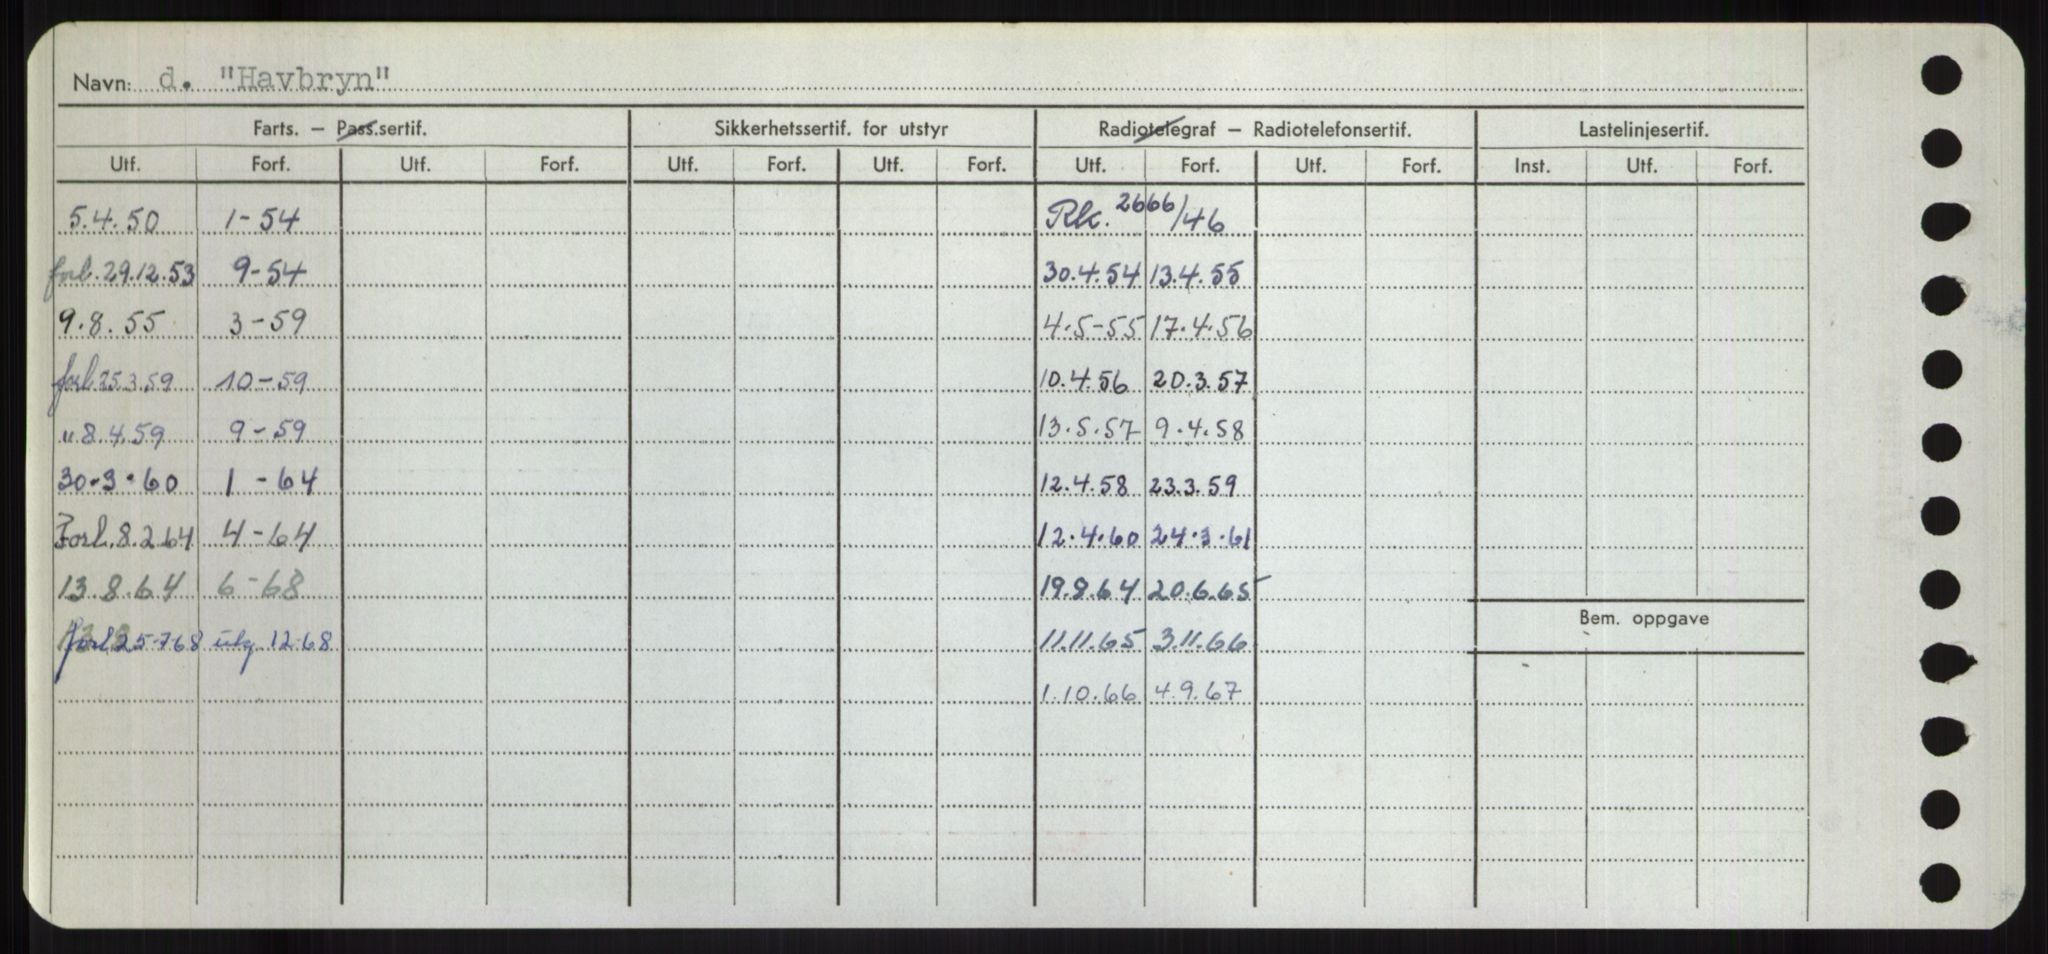 Navn: d. "Havbryn"
Farts. – Pass.sertif. Sikkerhetssertif. for utstyr Radiotelegraf – Radiotelefonsertif. Lastelinjesertif.
Utf. Forf. Utf. Forf. Utf. Forf. Utf. Forf. Utf. Forf. Utf. Forf. Inst. Utf. Forf.
5.4.50 1-54 Rk. 2666/46
forl. 29.12.53 9-54 30.4.54 13.4.55
9.8.55 3-59 4.5-55 17.4.56
forl 25.3.59 10-59 10.4.56 20.3.57
" 8.4.59 9-59 13.5.57 9.4.58
30.3.60 1-64 12.4.58 23.3.59
Forl. 8.2.64 4-64 12.4.60 24.3.61
13.8.64 6-68 19.8.64 20.6.65
forl. 25-7-68 utg. 12-68 11.11.65 3.11.66
Bem. oppgave
1.10.66 4.9.67